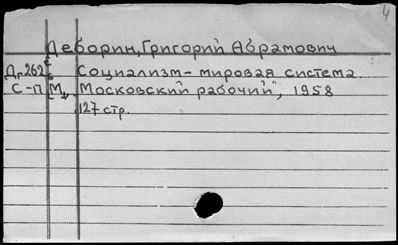 4
Деборин, Григорий Абрамович
Д-262 Социализм - мировая система.
С-П М., Московский рабочий", 1958
127 стр.